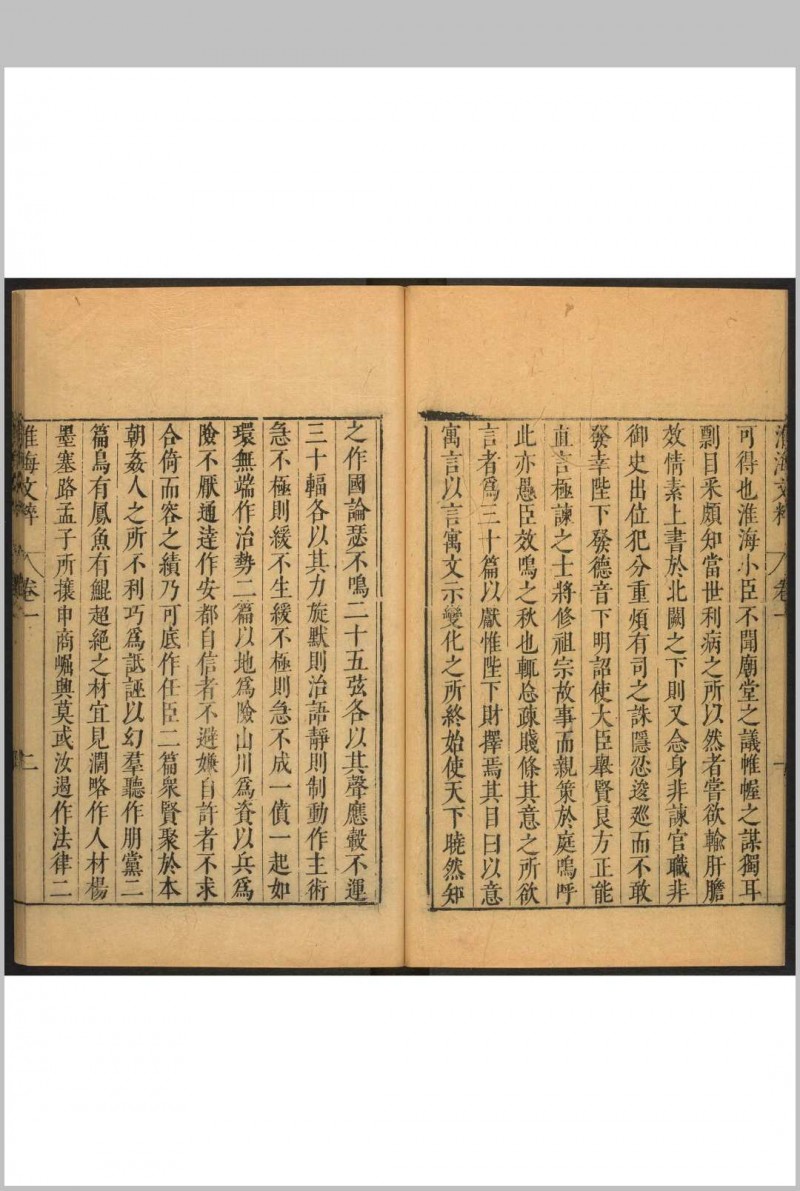 淮海文粹 卷一 一
可得也淮海小臣不聞廟堂之議帷幄之謀獨耳
剽目采頗知當世利病之所以然者嘗欲輸肝膽
效情素上書於北闕之下則又念身非諫官職非
御史出位犯分重煩有司之誅隱忍逡巡而不敢
發幸陛下發德音下明詔使大臣舉賢良方正能
直言極諫之士將修祖宗故事而親策於庭嗚呼
此亦愚臣效鳴之秋也輒忘疎賤條其意之所欲
言者爲三十篇以獻惟陛下財擇焉其目曰以意
寓言以言寓文示變化之所終始使天下曉然知
之作國論瑟不鳴二十五弦各以其聲應轂不運
三十輻各以其力旋默則治語靜則制動作主術
急不極則緩不生緩不極則急不成一僨一起如
環無端作治勢二篇以地爲險山川爲資以兵爲
險不厭通達作安都自信者不避嫌自許者不求
合倚而容之績乃可底作任臣二篇衆賢聚於本
朝姦人之所不利巧爲詆誣以幻羣聽作朋黨二
篇鳥有鳳魚有鯤超絕之材宜見濶略作人材楊
墨塞路孟子所攘申商崛興莫或汝過作法律二
淮海文粹 卷一 二